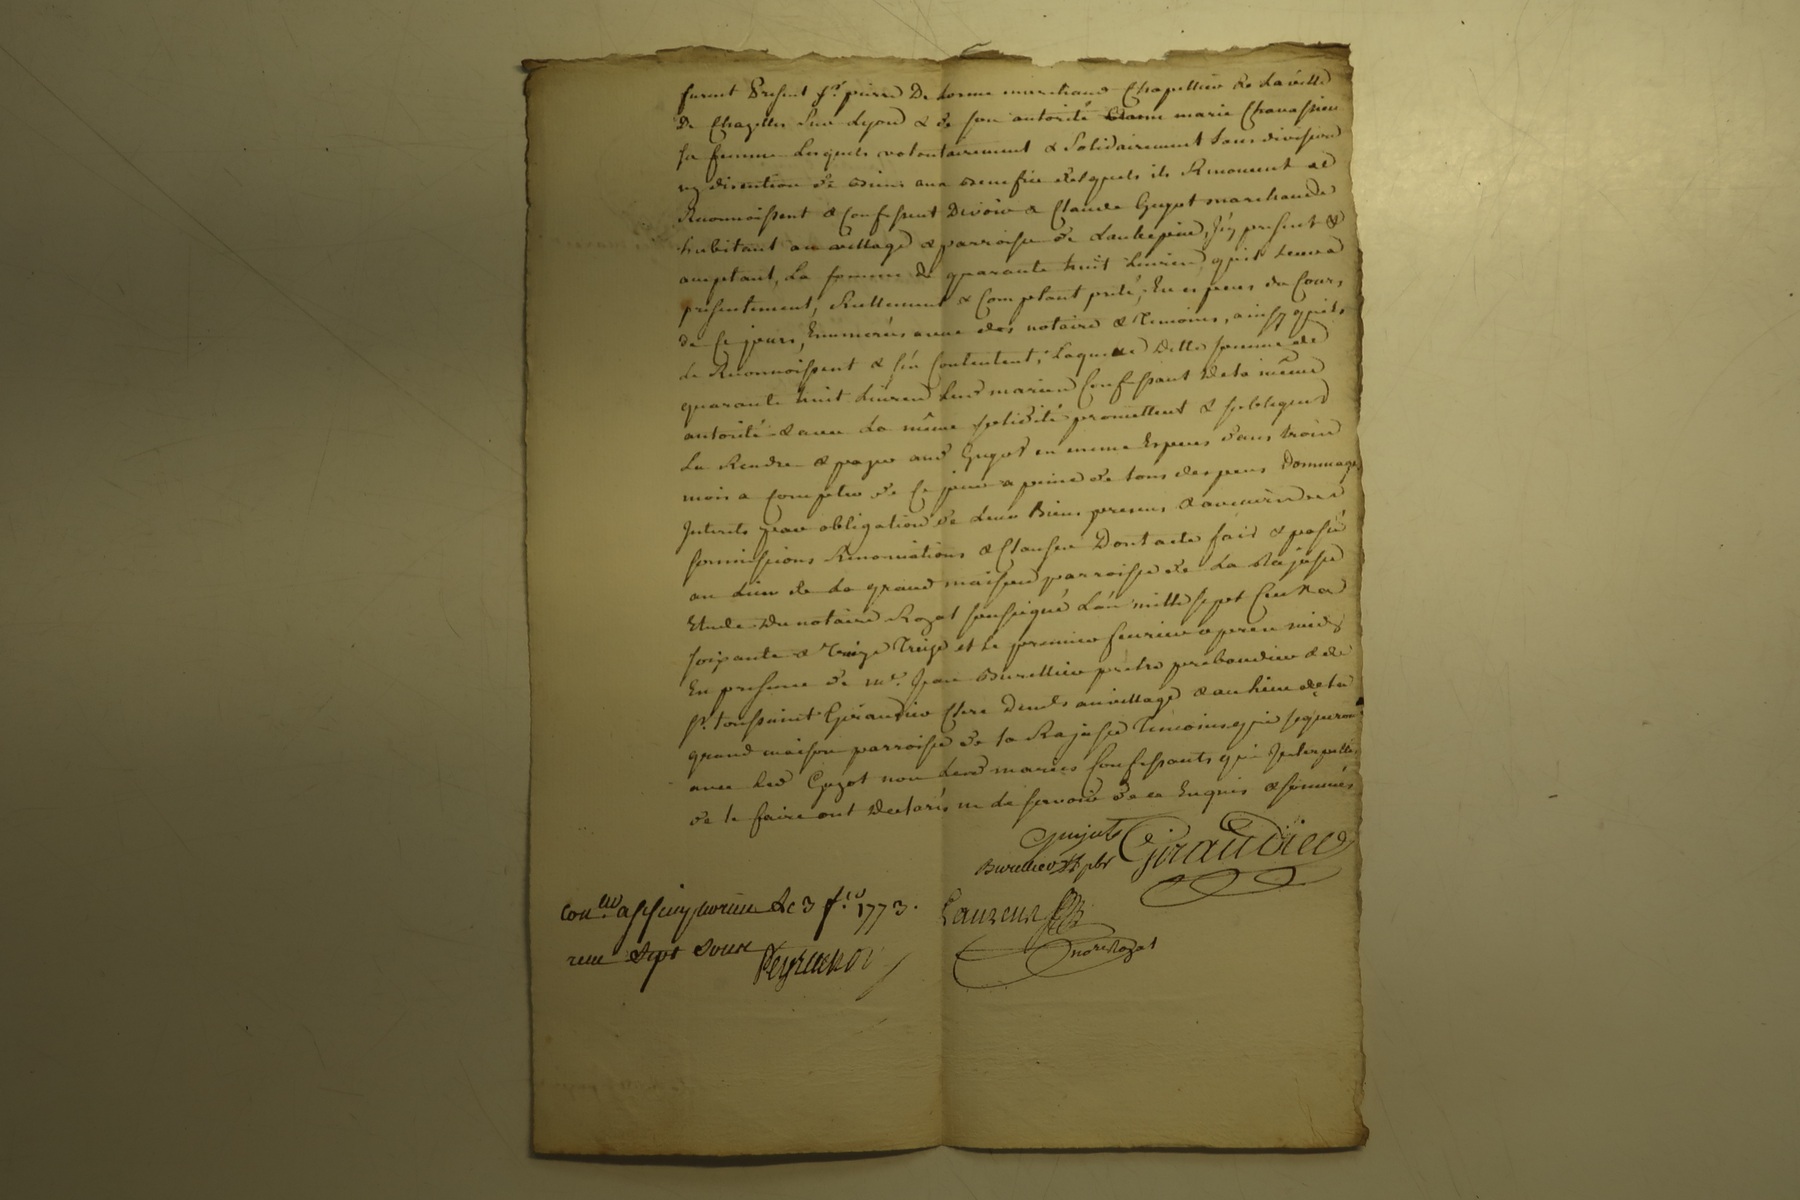 furent present sr. pierre De Lorme marchand Chapellier de la ville
De Chazelles sur Lyon & de son autorité Jeanne marie Chavassieu
sa femme Lesquels volontairement & Solidairement sans division
ny discution de Biens aux Benefice desquels ils Renoncent ont
Reconnoissent & Confessent Devoir a Claude Guyot marchand
habitant au village & parroisse de Laubepin, Icy present &
acceptant, La somme de quarante huit Livres, qu'il leur a
presentement, Reellement & Comptant preté, En especes du Cours
de Ce jour, Enumerés avec des notaire & Temoins, ainsy qu'ils
Le Reconnoissent & s'en Contentent; Laquelle Ditte somme de
quarante huit Livres Les mariés Confessant de la même
autorité & avec La même solidité promettent & s'obligent
La Rendre & payer aud Guyot en meme Especes dans trois
mois a Compter de Ce jour a peine de tous despens Dommages
Interets par obligation de Leurs Biens presens & avenir
soumissions Renonciations & Clauses Dont acte fait & passé
au Lieu de La grand maison parroisse de La Rajasse
Etude du notaire Rozat soussigné L'an mille sept Cent
soixante & Treize Treize et Le premier fevrier apres midy
En presence de me. Jean Burellier pretre prebandier & de
sr. toussaint Girandier Clerc Dmts au village & au lieu de la
grand maison parroisse de la Rajasse Temoins qui signeront
avec led Guyot non Lesd mariés Confessants qui Interpellés
de le faire ont Declarés ne le sçavoir de ce Enquis & sommés
Guijot Girandier
Burellier pbr
Conllé a st simphorien Le 3 fer 1773. Laurens
receu sept sous Peyrachon notre Rozat